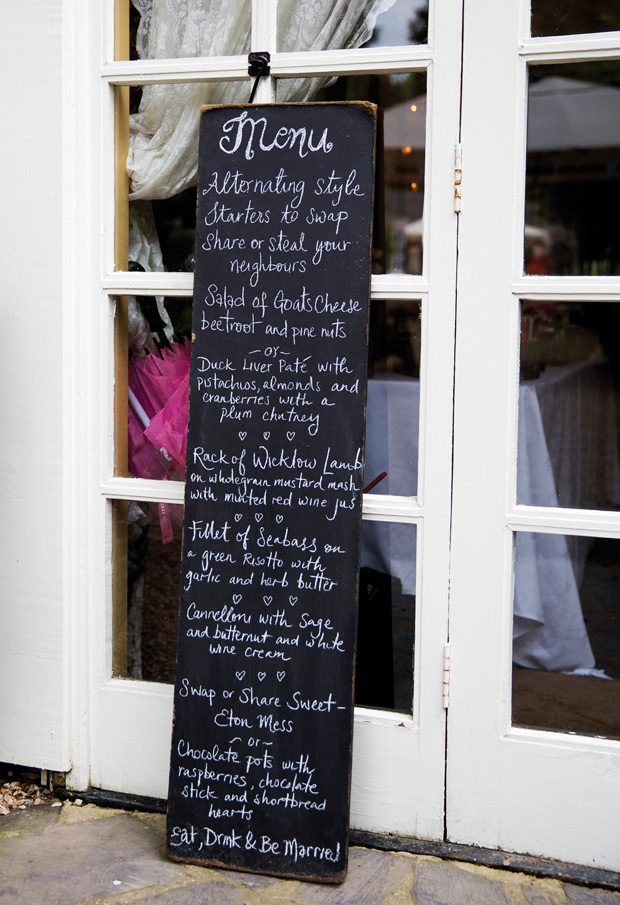 Menu
Alternating style
Starters to swap
Share or steal your
neighbours
Salad of Goats Cheese
beetroot and pine nuts
~or~
Duck Liver Paté with
pistachios, almonds and
cranberries with a
plum chutney
♡ ♡ ♡
Rack of Wicklow Lamb
on wholegrain mustard mash
with minted red wine jus
♡ ♡ ♡
Fillet of Seabass on
a green Risotto with
garlic and herb butter
♡ ♡ ♡
Cannelloni with Sage
and butternut and white
wine cream
♡ ♡ ♡
Swap or Share Sweet-
Eton Mess
~or~
Chocolate pots with
raspberries, chocolate
stick and shortbread
hearts
Eat, Drink & Be Married